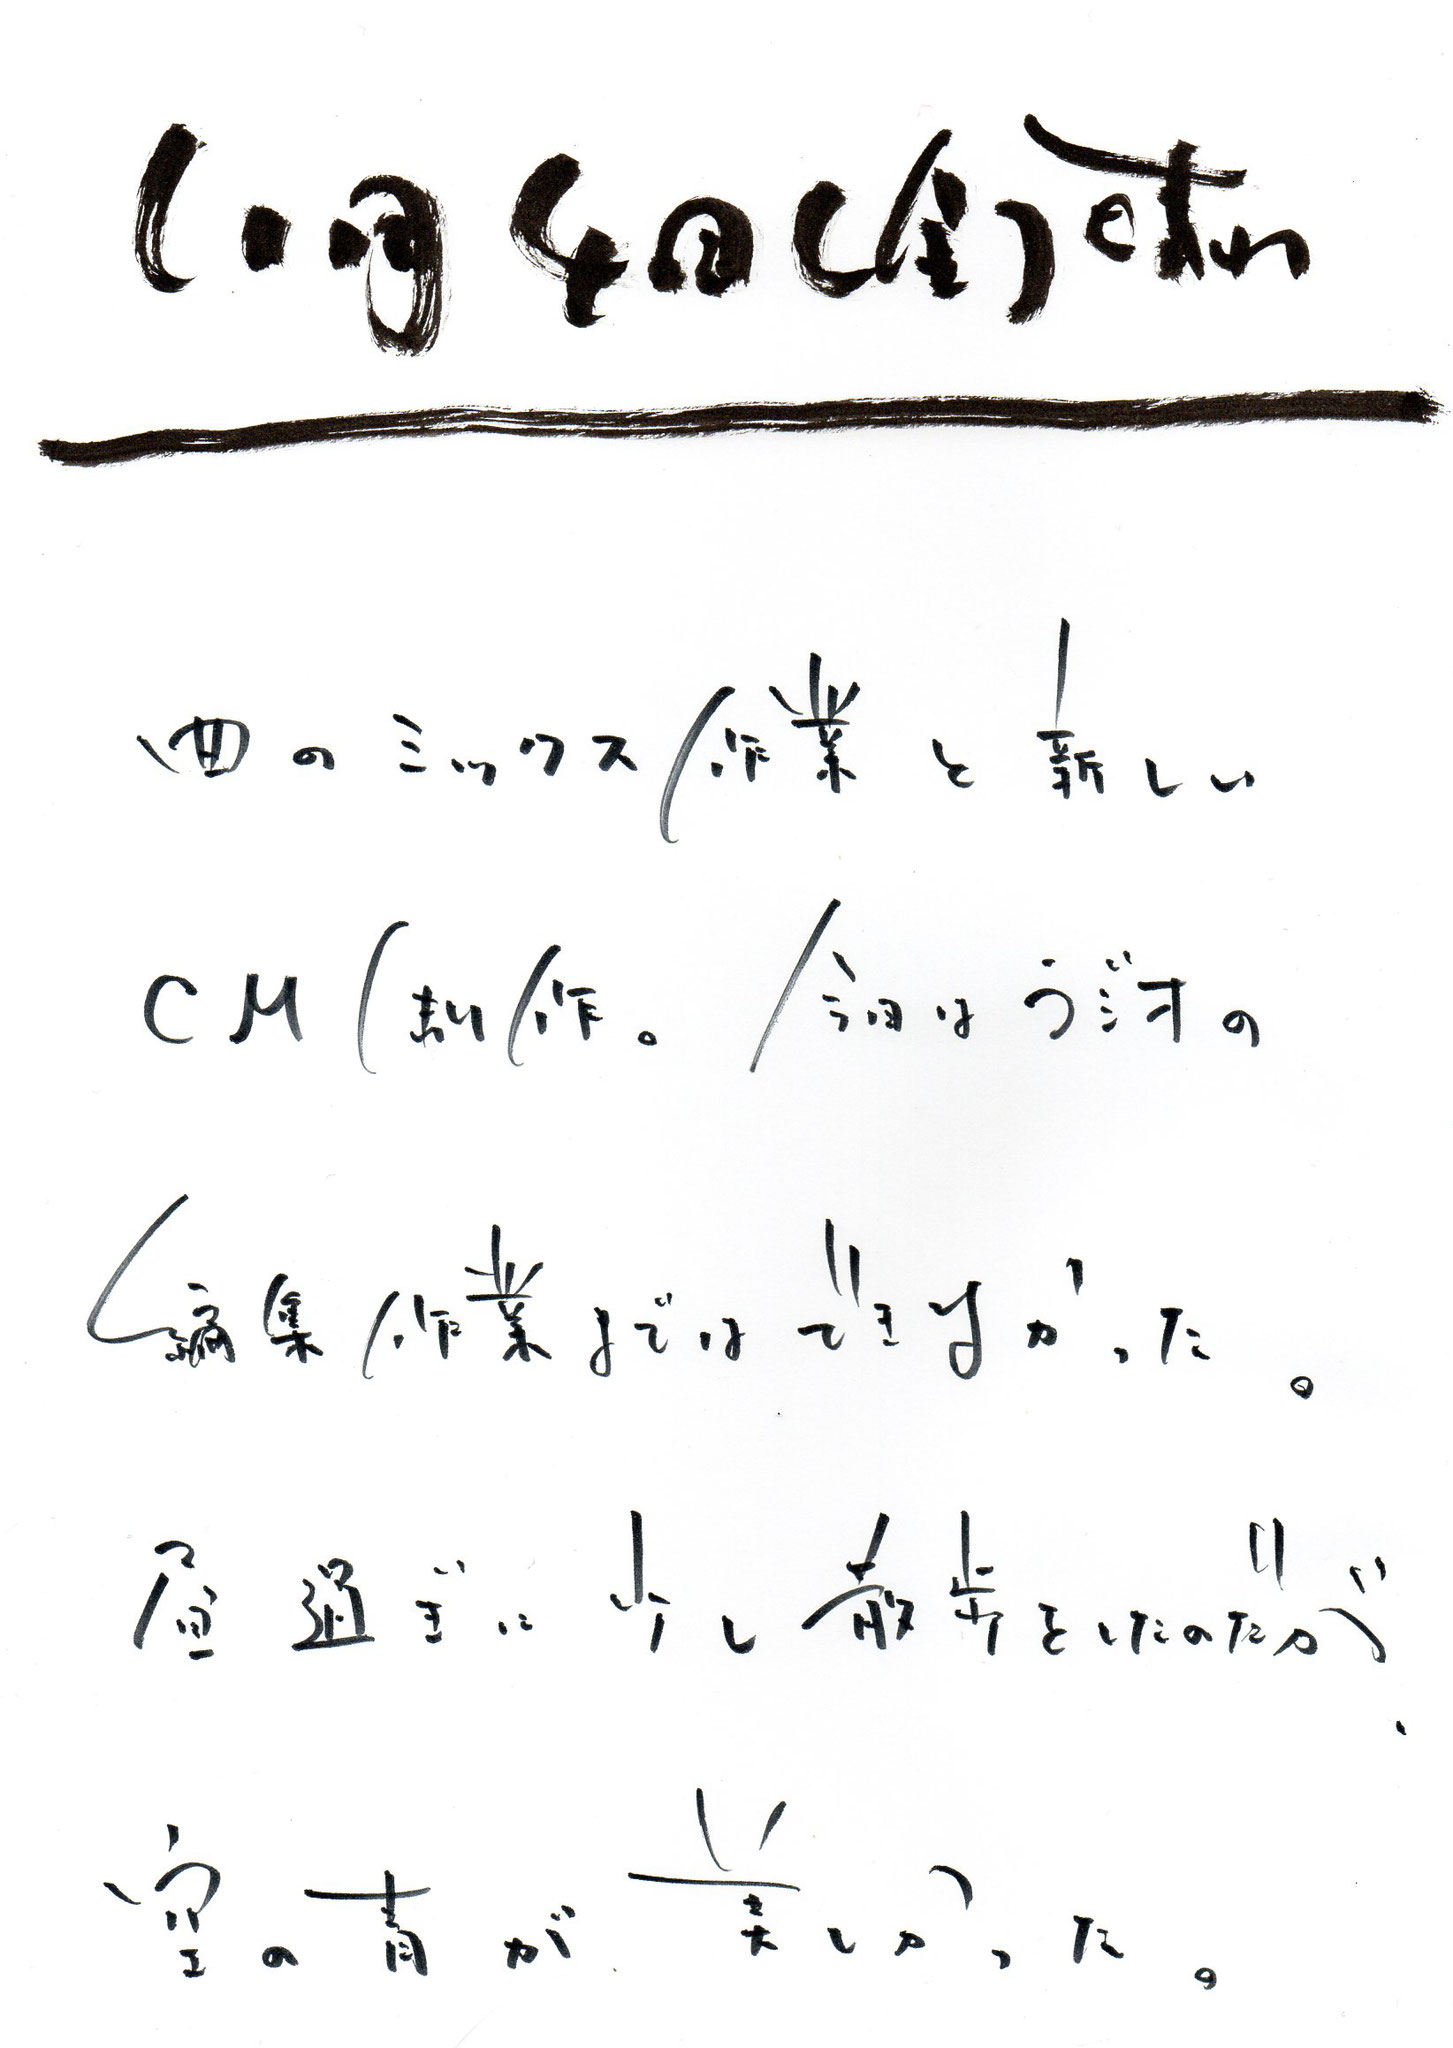 11月4日(金)晴れ
曲のミックス作業と新しい
CM制作。今日はラジオの
編集作業まではできなかった。
昼過ぎに少し散歩をしたのだが、
空の青が美しかった。